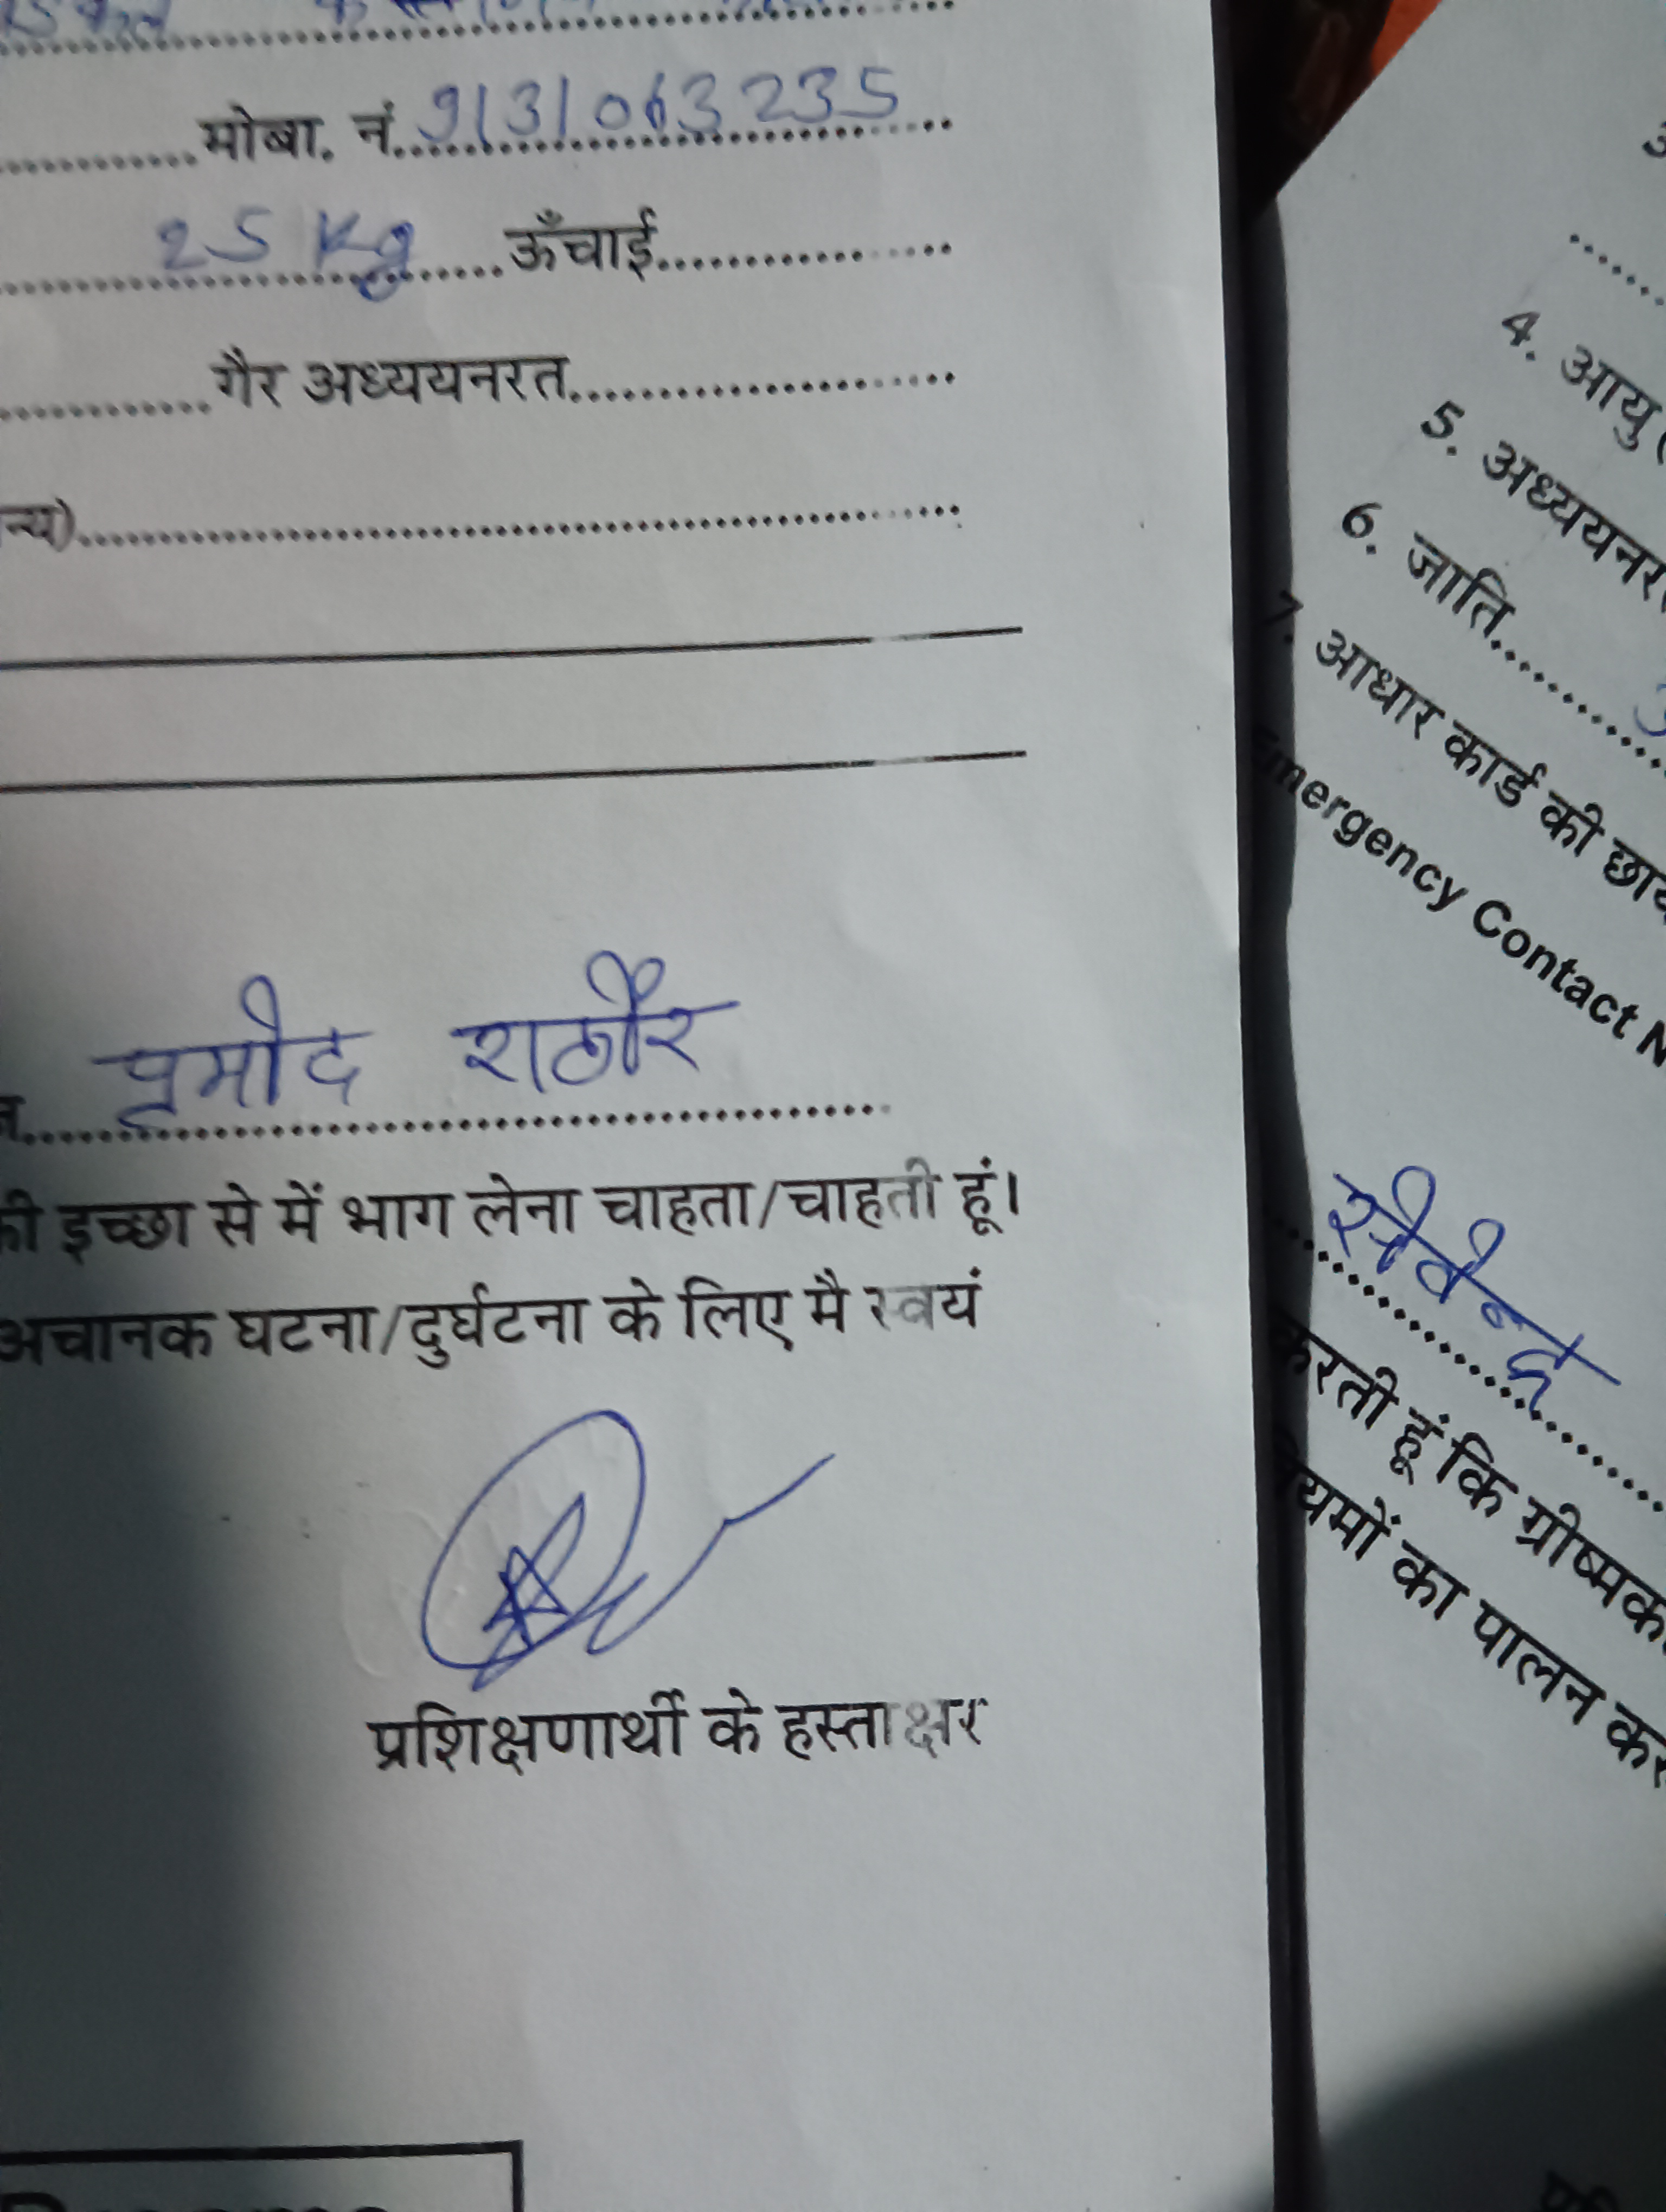 मोबा. नं. 9131063235
25 Kg ऊँचाई
गैर अध्ययनरत
न्य)
प्रमोद राठौर
की इच्छा से में भाग लेना चाहता/चाहती हूं।
अचानक घटना/दुर्घटना के लिए मै स्वयं
प्रशिक्षणार्थी के हस्ताक्षर
4. आयु (
5. अध्ययनर
6. जाति
7. आधार कार्ड की छाय
Emergency Contact N
करती हूं कि ग्रीष्मक
यमों का पालन कर